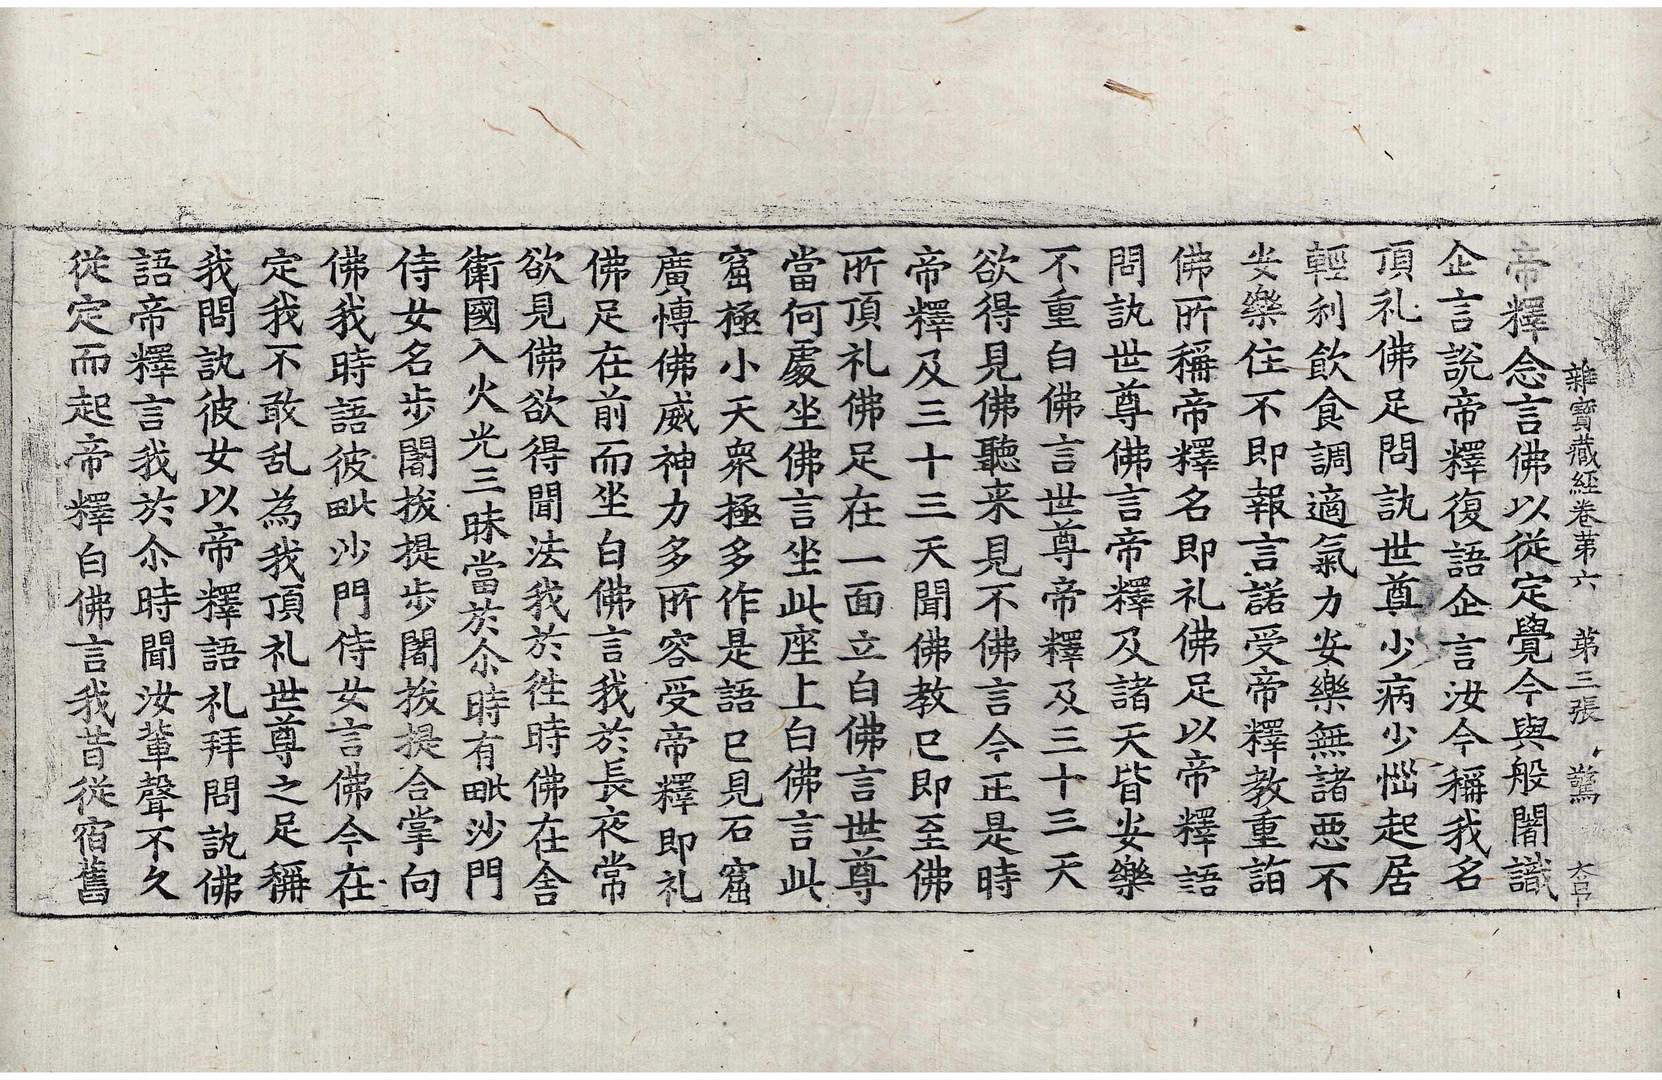 雜寶藏経卷苐六 苐三張 驚
帝釋念言佛以從定覺今與般闍識
企言說帝釋復語企言汝今稱我名
頂礼佛足問訊世尊少病少惱起居
輕利飲食調適氣力安樂無諸惡不
安樂住不即報言諾受帝釋教重詣
佛所稱帝釋名即礼佛足以帝釋語
問訊世尊佛言帝釋及諸天皆安樂
不重白佛言世尊帝釋及三十三天
欲得見佛聽来見不佛言今正是時
帝釋及三十三天聞佛教已即至佛
所頂礼佛足在一面立白佛言世尊
當何處坐佛言坐此座上白佛言此
窟極小天衆極多作是語已見石窟
廣愽佛威神力多所容受帝釋即礼
佛足在前而坐白佛言我於長夜常
欲見佛欲得聞法我於徃時佛在舍
衛國入火光三昧當於尒時有毗沙門
侍女名步闍拔提步闍拔提合掌向
佛我時語彼毗沙門侍女言佛今在
定我不敢乱為我頂礼世尊之足稱
我問訊彼女以帝釋語礼拜問訊佛
語帝釋言我於尒時聞汝輩聲不久
從定而起帝釋白佛言我昔從宿舊